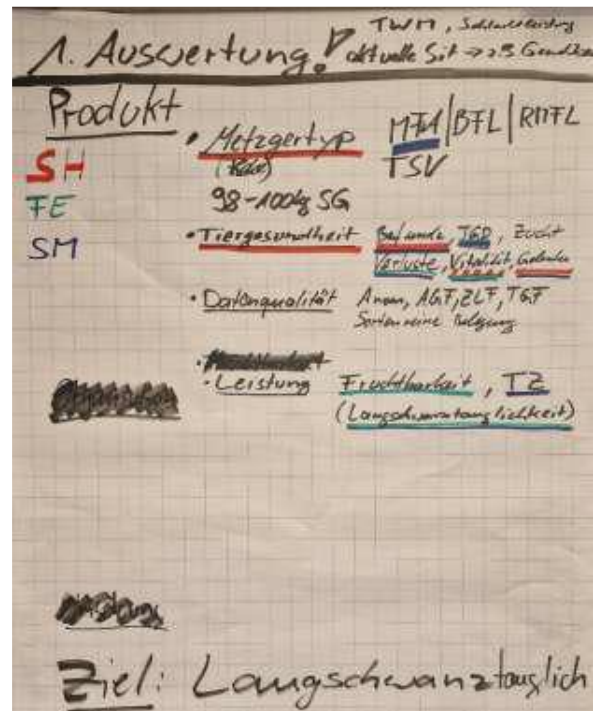 TWM, Schlachtleistung
1. Auswertung! aktuelle Sit → z.B
Produkt
SH
FE
SM
• Metzgertyp MFA | BFL | RMFL
TSV
98-100kg SG
• Tiergesundheit Befunde, TGD, Zucht
Verluste, Vitalität, Gelenke
• Datenqualität Anom, AGF, ZLF, TGF
Sortenreine Belegung
• Leistung Fruchtbarkeit, TZ
(Langschwanztauglichkeit)
Ziel: Langschwanztauglich